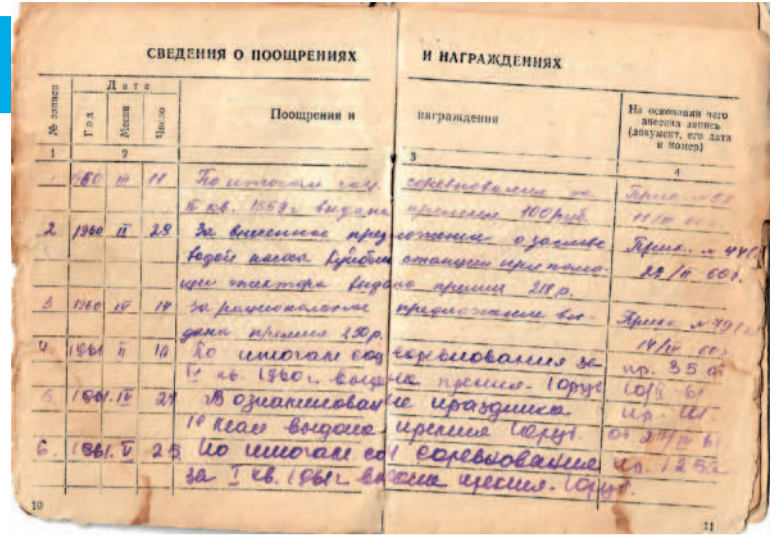 СВЕДЕНИЯ О ПООЩРЕНИЯХ И НАГРАЖДЕНИЯХ
№ записи
Дата
Год
Месяц
Число
Поощрения и награждения
На основании чего
внесена запись
(документ, его дата
и номер)
1 2 3 4
1 1960 III 11 По итогам соц. соревнования за Прик. № 58
IV кв. 1959г выдана премия 100 руб. 11/III 60г.
2 1960 29 За внесенное предложение о заливе Прик. № 44
водой насоса станции при помо- 29/ 60г.
щи эжектора выдана премия 218 р.
3 1960 IV 14 За рационалат. предложение вы- Приказ № 49
дана премия 250р. 14/IV 60г
4. 1961 II 10 По итогам соц соревнования за пр. 35 от
IV кв. 1960г выдана премия - 10руб 10/II 61
5 1961. IV 27 В ознаменование праздника пр.
1го мая выдана премия 10руб. от 27/IV 61.
6. 1961. V 25 По итогам соц соревнования пр. 125а
за I кв. 1961г выдана премия - 10руб.
10 11